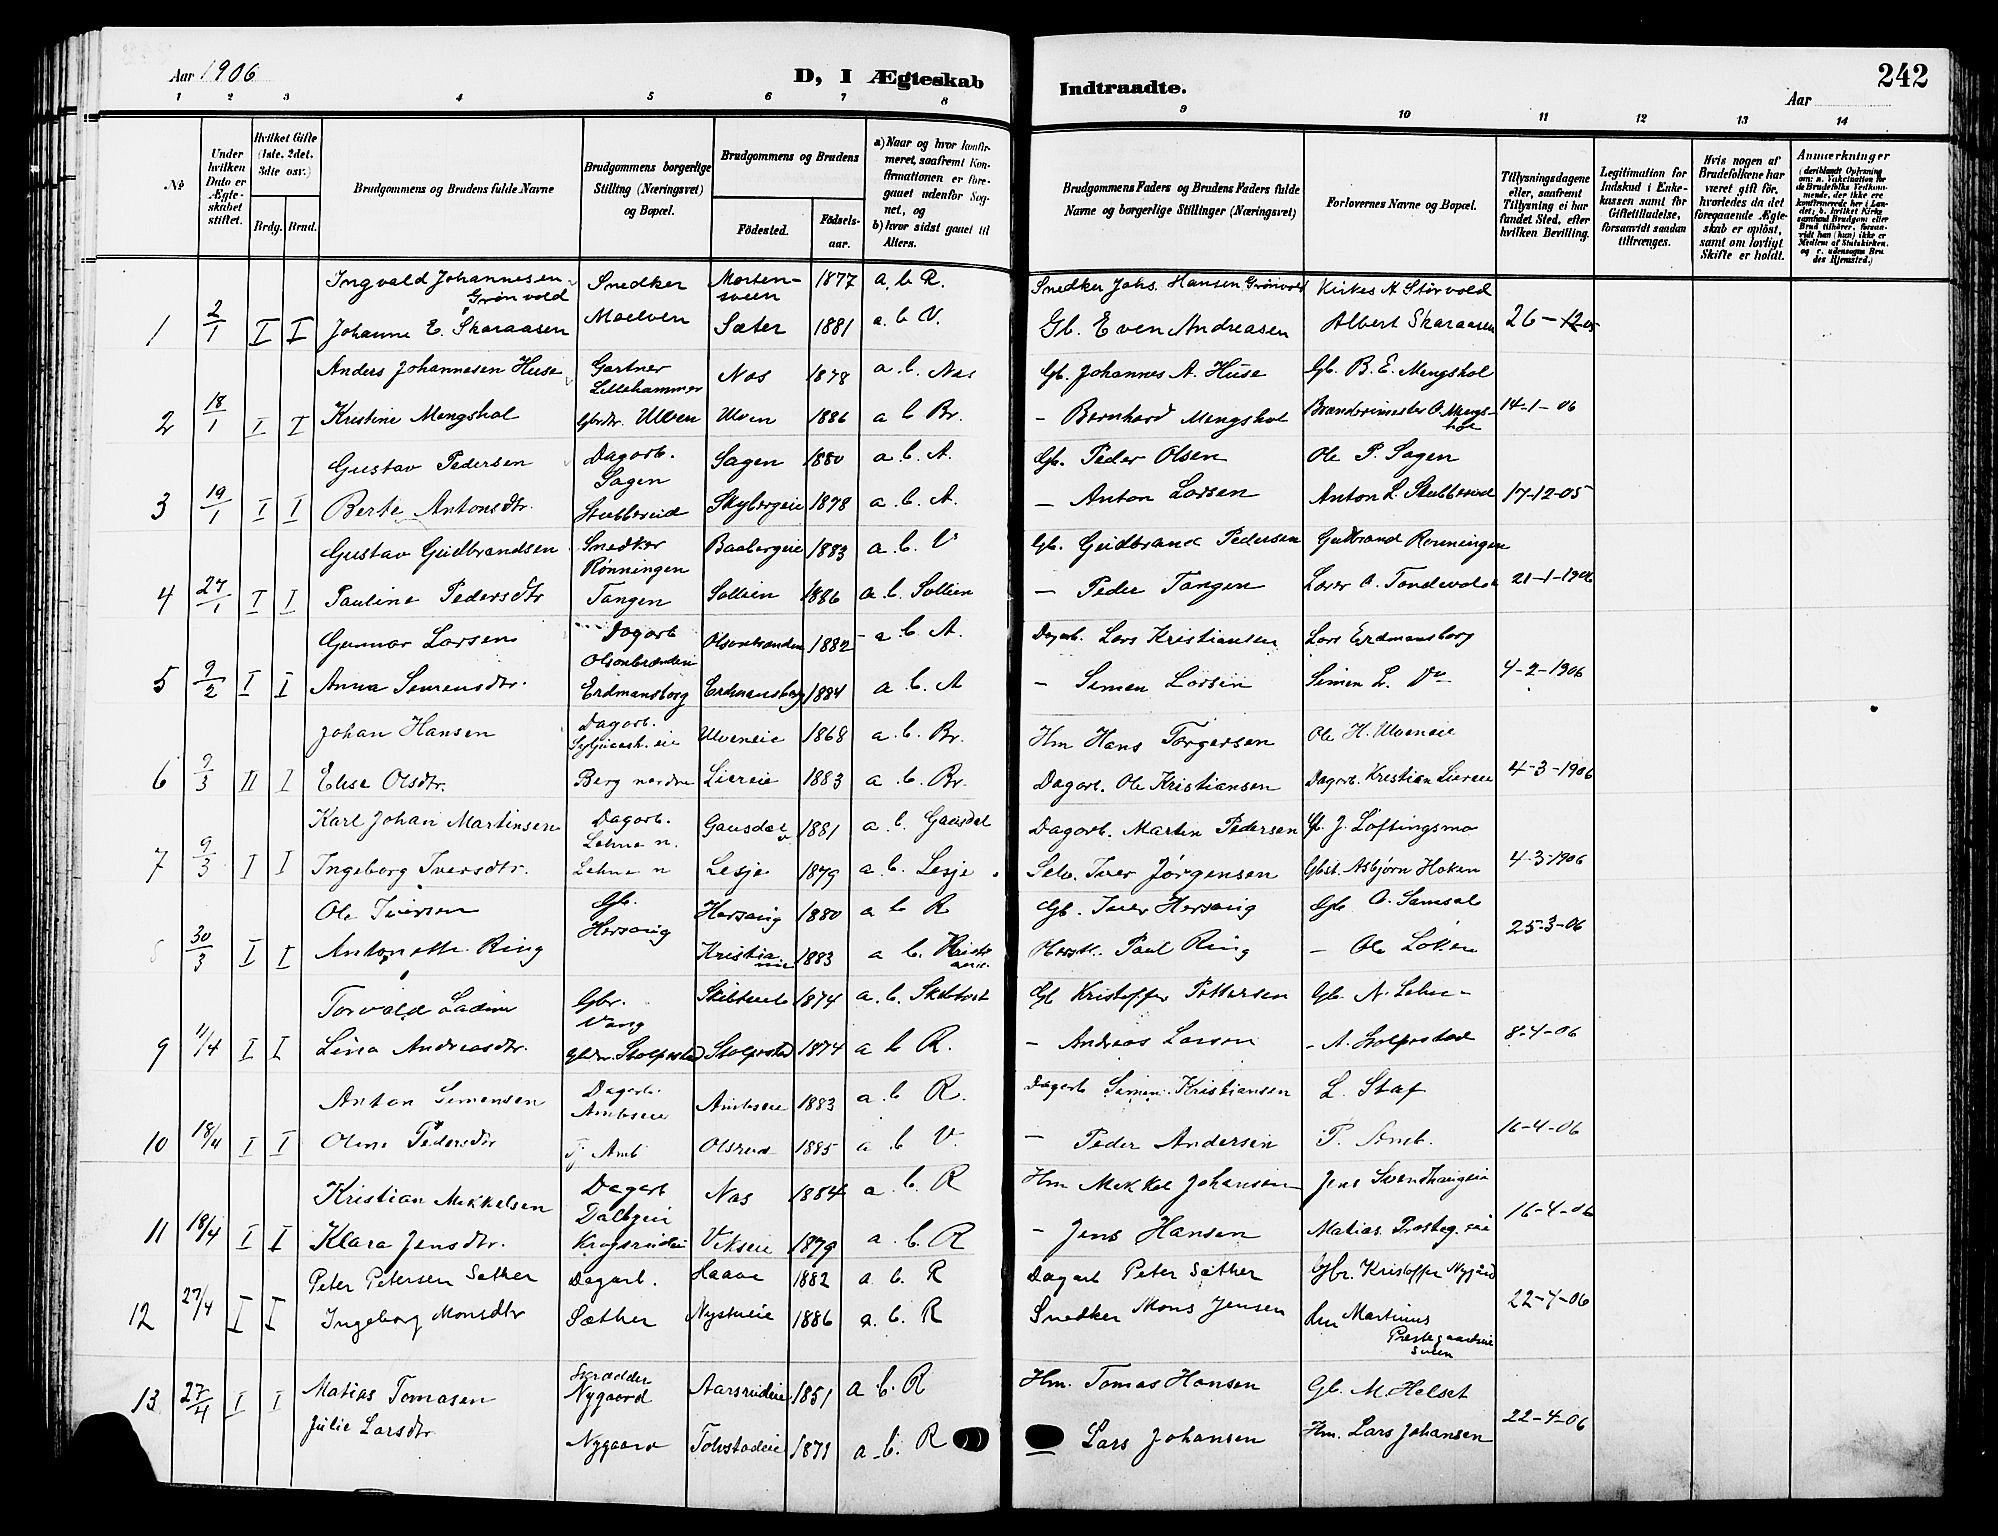 Aar 1906
D, I Ægteskab Indtraadte.
Aar
242
1 2 3 4 5 6 7 8 9 10 11 12 13 14
No
Under hvilken Dato er Ægteskabet stiftet.
Hvilket Gifte (1ste. 2det. 3die osv.)
Brdg. Brud.
Brudgommens og Brudens fulde Navne
Brudgommens borgerlige Stilling (Næringsvei) og Bopæl.
Brudgommens og Brudens
Fødested. Fødsels-aar.
a) Naar og hvor konfirmeret, saafremt Konfirmationen er foregaaet udenfor Sognet, og
b) hvor sidst gaaet til Alters.
Brudgommens Faders og Brudens Faders fulde Navne og borgerlige Stillinger (Næringsvei)
Forlovernes Navne og Bopæl.
Tillysningsdagene eller, saafremt Tillysning ei har fundet Sted, efter hvilken Bevilling.
Legitimation for Indskud i Enkekassen samt for Giftetilladelse, forsaavidt saadan tiltrænges.
Hvis nogen af Brudefolkene har været gift før, hvorledes da det foregaaende Ægteskab er opløst, samt om lovligt Skifte er holdt.
Anmærkninger
Ingvald Johannesen Grönvold Snedker Mortensveen 1877 a, b R. Snedker Johs. Hansen Grönvold Kirkes. A Störvold
1 2/1 I I Johanne E. Skaraasen Moelven Sæter 1881 a. b V. Gb. Even Andreasen Albert Skaraasen 26-12-05
Anders Johannesen Huse Gartner Lillehammer Nas 1878 a b. Nas Gb. Johannes A. Huse Gb. B. E. Mengshol
2 18/1 I I Kristine Mengshol Gbrdtr. Ulven Ulven 1886 a b Br. - Bernhard Mengshol 14-1-06
Gustav Pedersen Dagarb. Sagen Sagen 1880 a b. A. Gb. Peder Olsen Ole P. Sagen
3 19/1 I I Berte Antonsdtr. Stubberud Skybergeie 1878 a. b. A. - Anton Larsen Anton L. Stubberud 17-12-05
Gustav Gudbrandsen Snedker Rønningen Baabergeie 1883 a. b. V. Gb. Gudbrand Pedersen Gudbrand Rønningen
4 27/1 I I Pauline Pedersdtr Tangen Sollien 1886 a. b. Sollien - Peder Tangen 21-1-1906
Gunnar Larsen Dagarb 1882 a b. A. Dagarb. Lars Kristiansen Lars Erdmansborg
5 9/2 I I Anna Simensdtr. Erdmansborg Erdmansborg 1884 a. b. A - Simen Larsen Simen L. Do 4-2-1906
Johan Hansen Dagarb. Ulveneie 1868 a. b. Br. Hm Hans Torgersen Ole H. Ulveneie
6 9/3 II I Elise Olsdtr. Berg nordre Liereie 1883 a. b. Br. Dagarb. Ole Kristiansen Dagarb. Kristian Liereie 4-3-1906
Karl Johan Martinsen Dagarb. Lehne n. Gausdal 1881 a. b. Gausdal Dagarb. Martin Pedersen J. Løftingsmo
7 9/3 I I Ingeborg Iversdtr. Lehne n Lesje 1879 a. b. Lesje Selv. Iver Jørgensen Asbjørn Haken 4-3-1906
Ole Iversen Gb. Hersoug Hersoug 1880 a b R Gb. Iver Hersoug Gb O. Samsal
8 30/3 I I Antonette Ring Kristiania 1883 a b. Kristiania. Paul Ring - Ole Løken 25-3-06
Torvald Ladim Gbr. Vang Skibtvet 1874 a. b. Skibtvet Gb Kristoffer Pettersen Gb. N. Lehne
9 11/4 I I Lina Andreasdtr. Gbdr. Stolpestad Stolpestad 1874 a b R. - Andreas Larsen - A. Stolpestad 8-4-06
Anton Simensen Dagarb. Ambseie Ambseie 1883 a b R. Dagarb Simen Kristiansen L. Staf
10 18/4 I I Oline Pedersdtr Tj. Amb Olsrud 1885 a b V. - Peder Andersen P. Amb. 16-4-06
Kristian Mekkelsen Dagarb Nas 1884 a. b. R Hm Mekkel Johansen Jens Svendhaugeie
11 18/4 I I Klara Jensdtr. Krogsrudeie Vikseie 1879 a. b. R - Jens Hansen Matias Prosteg. eie 16-4-06
Peter Petersen Sæther Dagarb. Haave 1882 a. b. R Dagarb Peter Sæther Gbr. Kristoffer Nygård
12 27/4 I I Ingeborg Monsdtr Sæther Nystueie 1886 a. b. R Snedker Mons Jensen Martinus Prestegaardseie 22-4-06
Matias Tomasen Skrædder Nygaard Aarsrudeie 1851 a b. R Hm. Tomas Hansen Gb. M. Helset
13 27/4 I I Julie Larsdtr Nygaard Tolvstadeie 1871 a. b. R Lars Johansen Hm. Lars Johansen 22-4-06